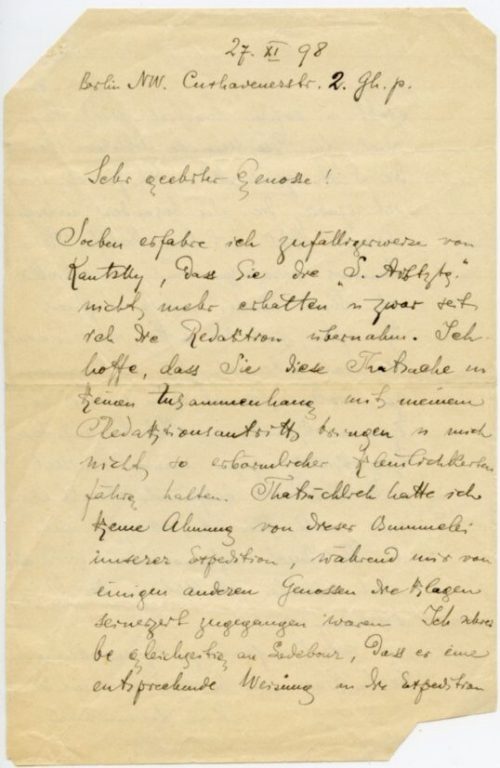 27. XI 98
Berlin NW. Cuxhavenerstr. 2. Gh. p.
Sehr geehrter Genosse!
Soeben erfahre ich zufälligerweise von
Kautsky, dass Sie die „S. Arbtztg."
nicht mehr erhalten u zwar seit
ich die Redaktion übernahm. Ich
hoffe, dass Sie diese Thatsache in
keinen Zusammenhang mit meinem
Redaktionsantritt bringen u mich
nicht so erbärmlicher Kleinlichkeiten
fähig halten. Thatsächlich hatte ich
keine Ahnung von dieser Bummelei
unserer Expedition, während mir von
einigen anderen Genossen die Klagen
seinerzeit zugegangen waren. Ich schrei
be gleichzeitig an Ledebour, dass er eine
entsprechende Weisung in die Expedition